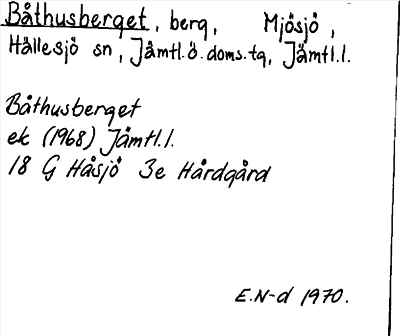 Båthusberget, berg, Mjösjö,
Hällesjö sn, Jämtl.ö.doms.tg, Jämtl.l.
Båthusberget
ek (1968) Jämtl.l.
18 G Håsjö 3e Hårdgård
E.N-d 1970.